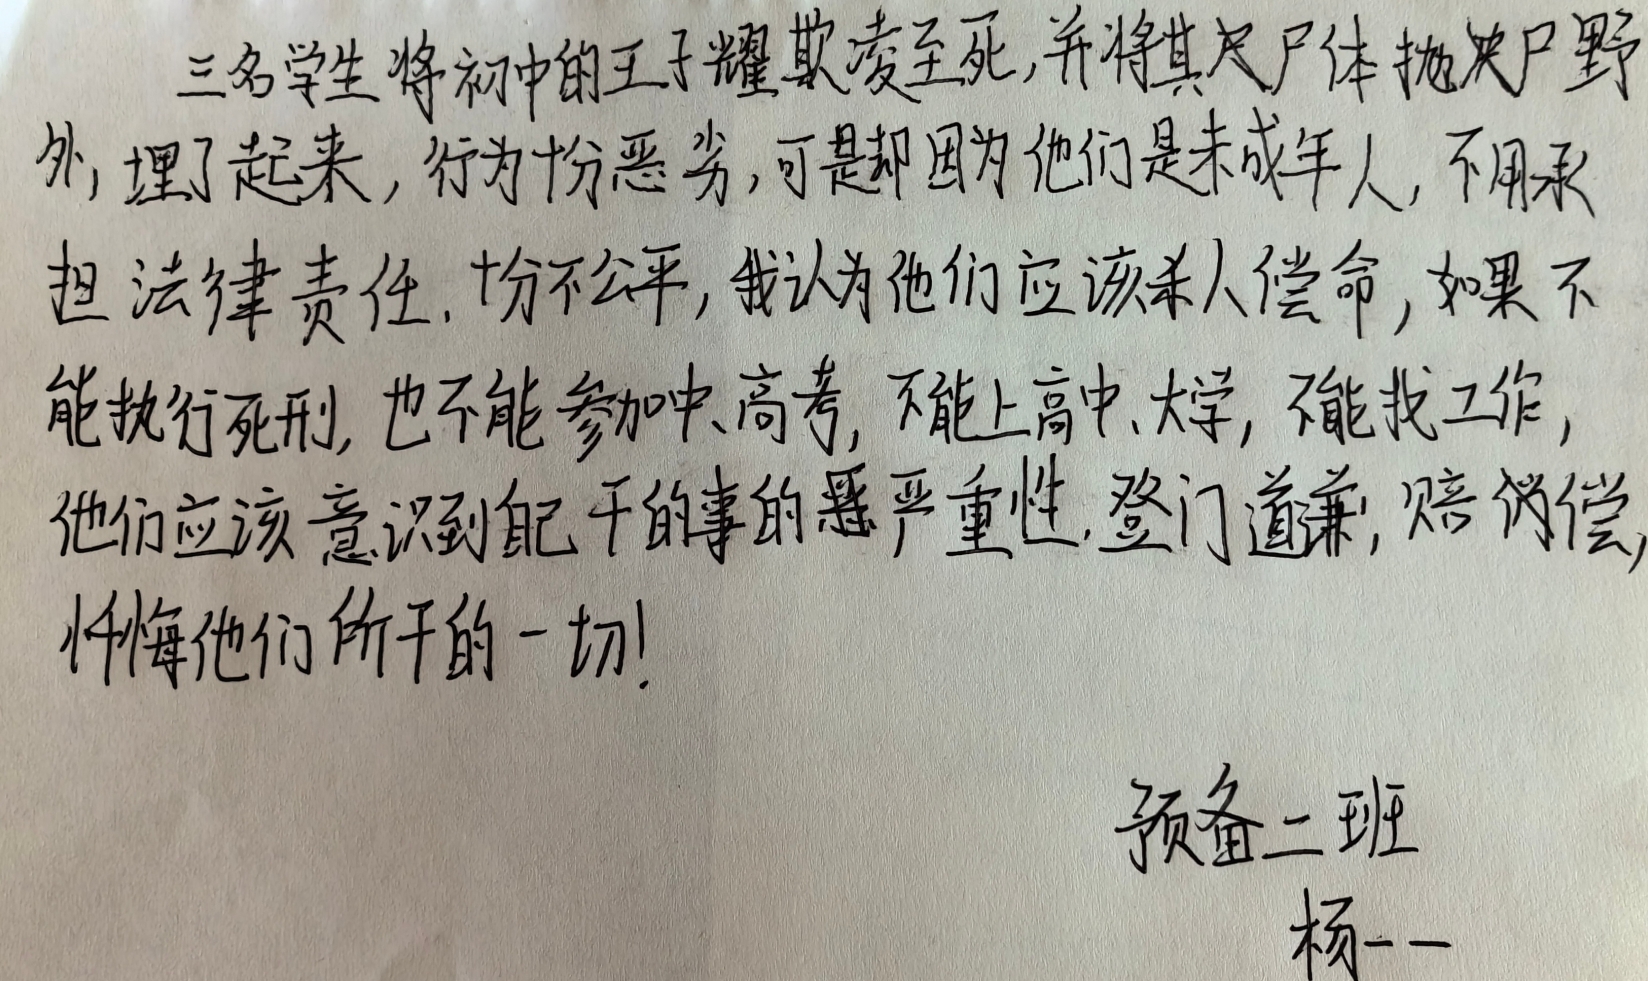 三名学生将初中的王子耀欺凌至死,并将其尸体抛尸野
外,埋了起来,行为十分恶劣,可是却因为他们是未成年人,不用承
担法律责任.十分不公平,我认为他们应该杀人偿命,如果不
能执行死刑,也不能参加中、高考,不能上高中、大学,不能找工作,
他们应该意识到自己干的事的严重性.登门道歉,赔偿,
忏悔他们所干的一切!
预备二班
杨一一